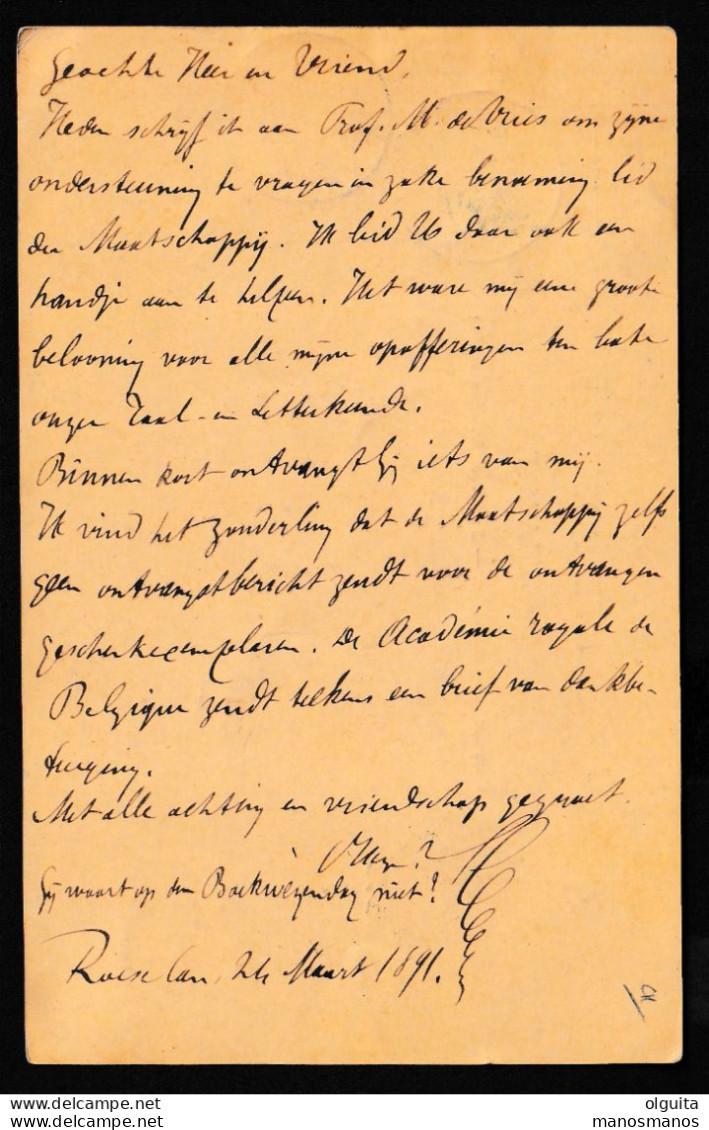 Geachte Heer en Vriend,
Heden schrijf ik aan Prof. M. de Vries om zijne
ondersteuning te vragen in zake benoeming lid
der Maatschappij. Ik bid U daar ook een
handje aan te helpen. Het ware mij eene groote
belooning voor alle mijne opofferingen ten bate
onzer Taal- en Letterkunde.
Binnen kort ontvangt Gij iets van mij.
Ik vind het zonderling dat de Maatschappij zelfs
geen ontvangstbericht zendt voor de ontvangen
geschenkexemplaren. De Académie royale de
Belgique zendt telkens een brief van dankbe-
tuiging.
Met alle achting en vriendschap gegroet.
Gij waart op den niet?
Rousselare, Maart 1891.
CH
olguita
manosmanos